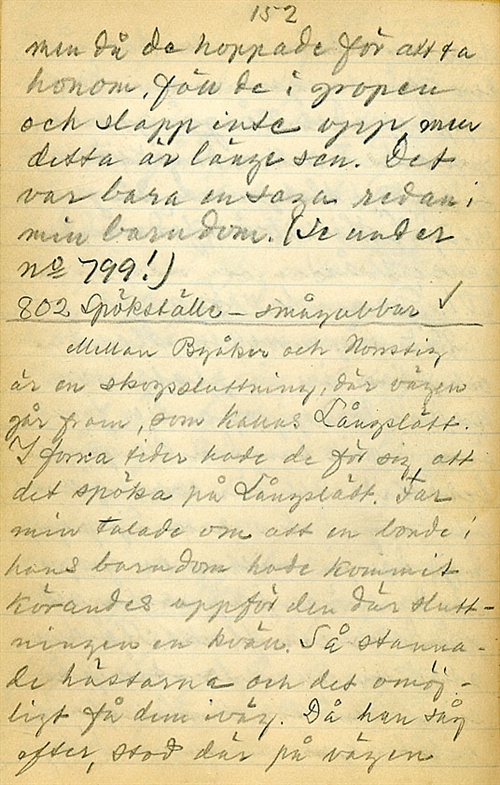 152
men då de hoppade för att ta
honom, föll de i gropen
och slapp inte upp, men
detta är länge sen. Det
var bara en saga redan i
min barndom. (Se under
nº 799!)
802 Spökställe - smågubbar ✓
Mellan Byåker och
är en skogssluttning, där vägen
går fram, som kallas Långslätt.
I forna tider hade de för sig att
det spöka på Långslätt. Far
min talade om att en bonde i
hans barndom hade kommit
körandes uppför den där slutt-
ningen en kväll. Så stanna-
de hästarna och det omöj-
ligt få dem iväg. Då han såg
efter, stod där på vägen